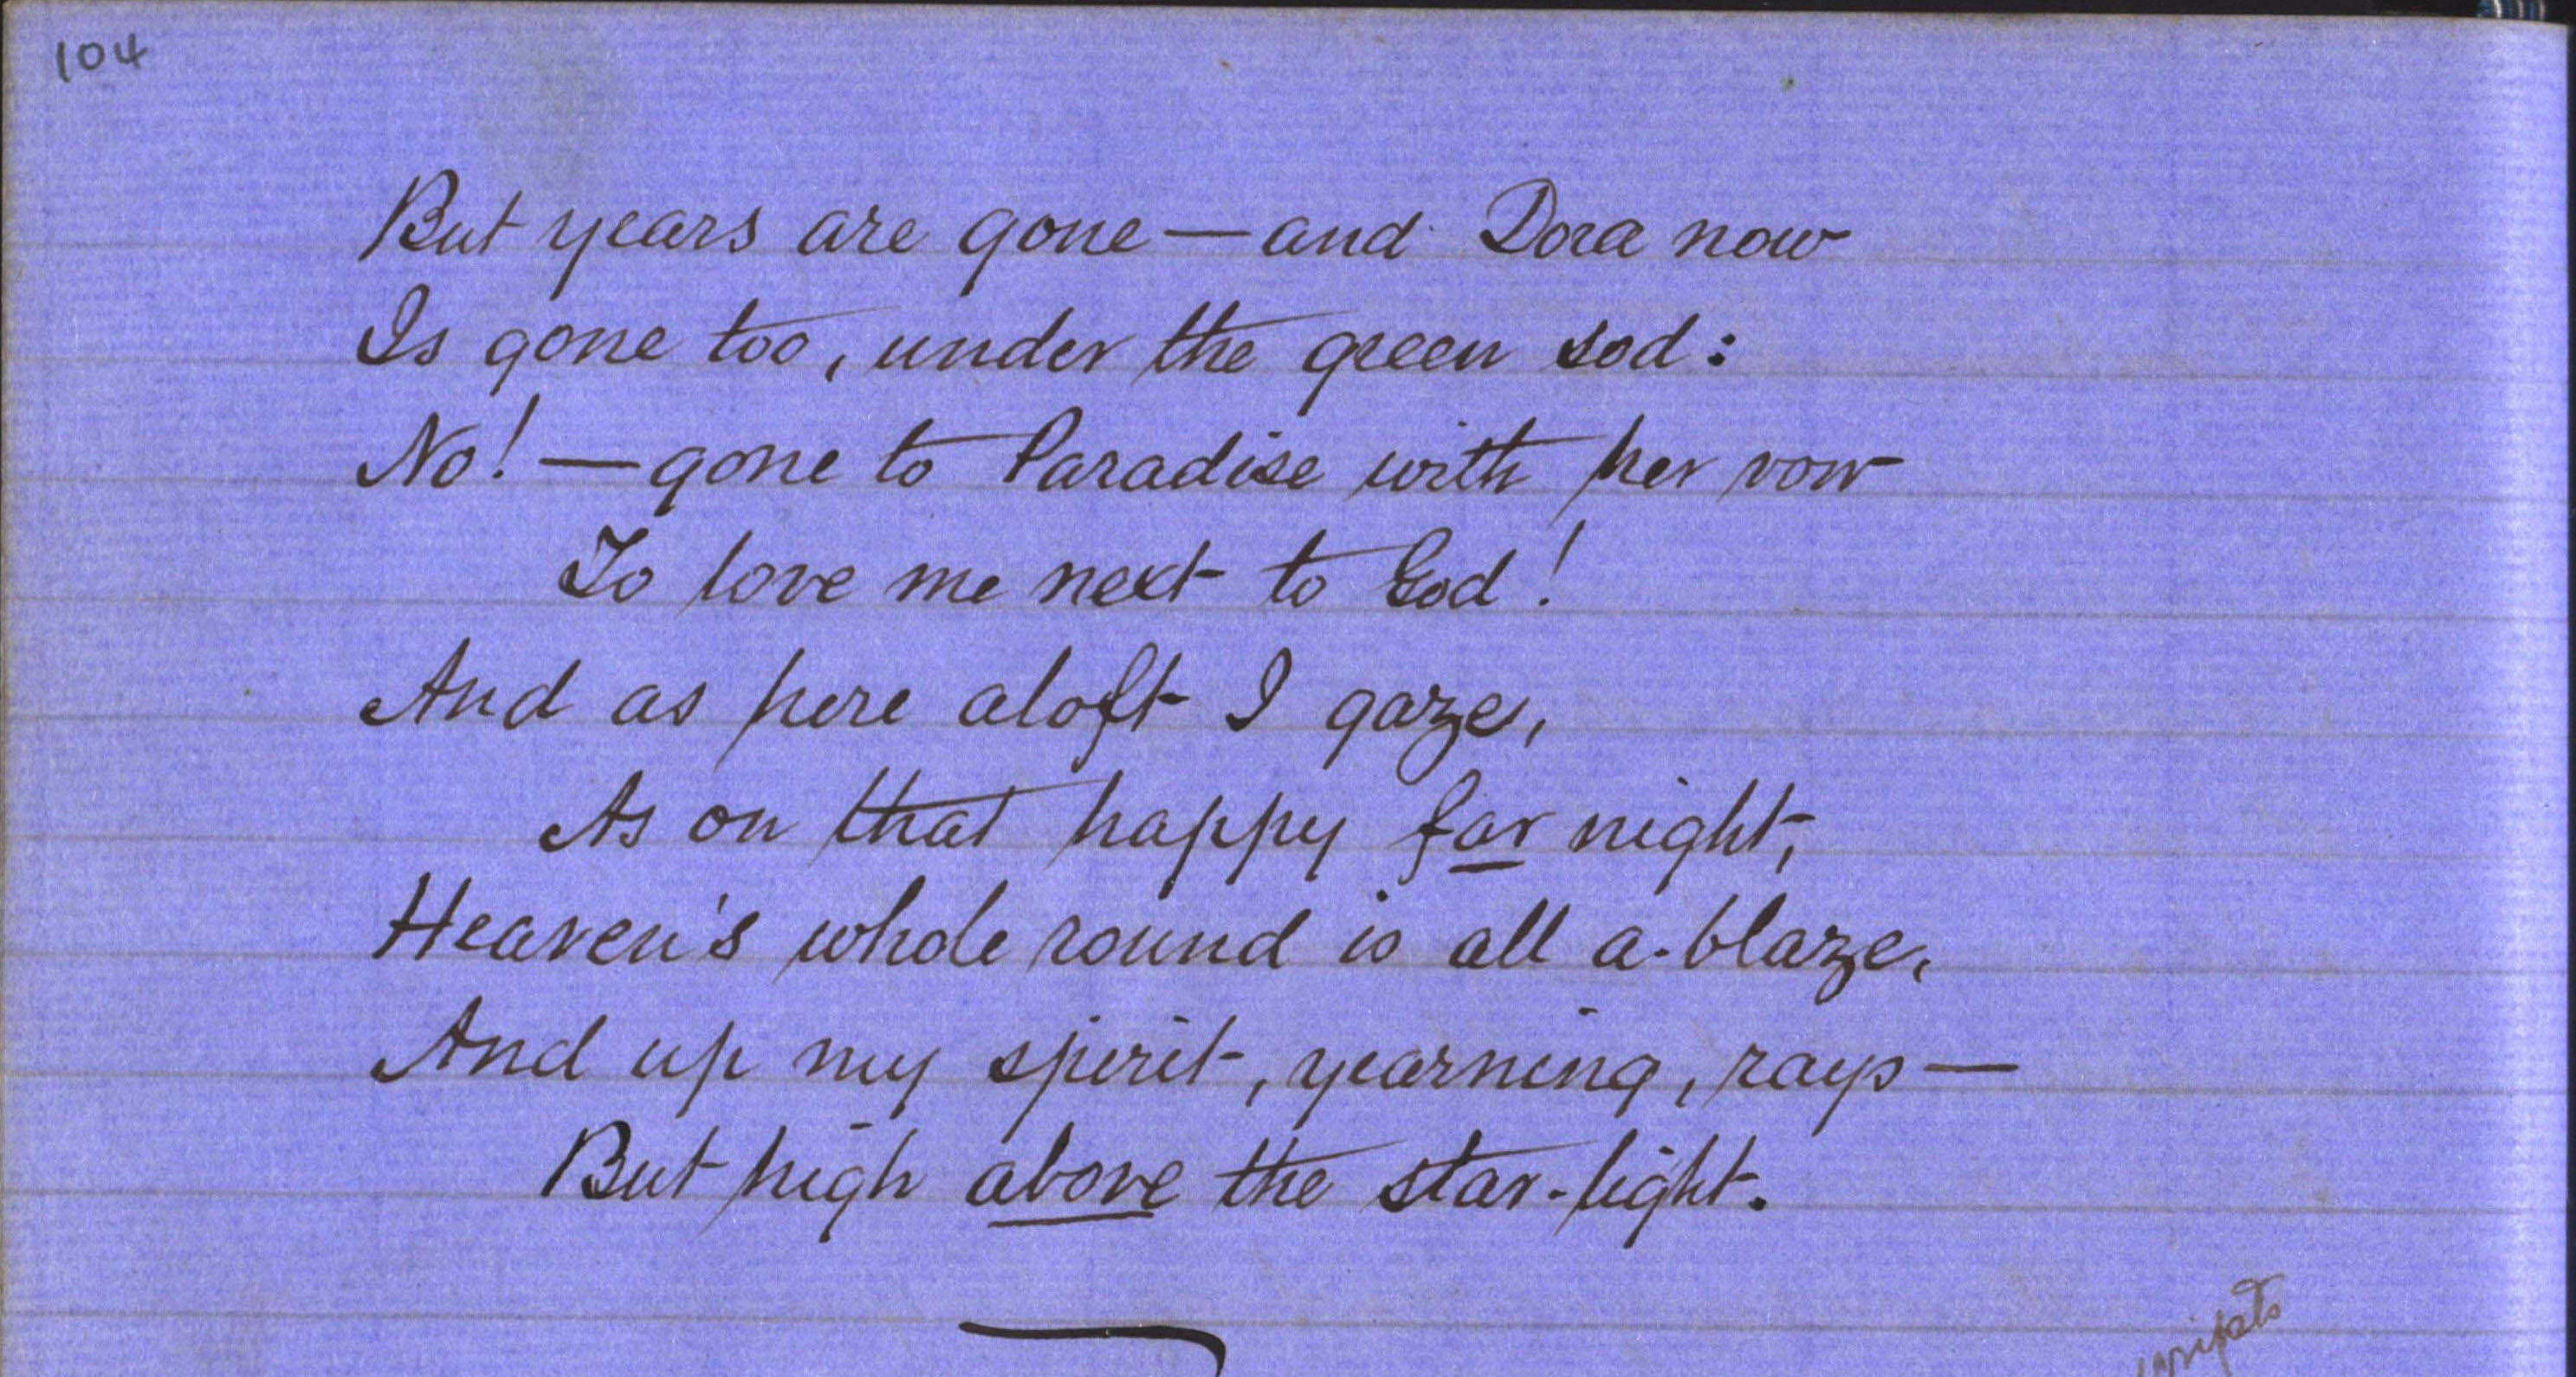 104
But years are gone — and Dora now
Is gone too, under the green sod:
No! — gone to Paradise with her vow
To love me next to God!
And as here aloft I gaze,
As on that happy far night,
Heaven's whole round is all a-blaze,
And up my spirit, yearning, rays —
But high above the star-light.